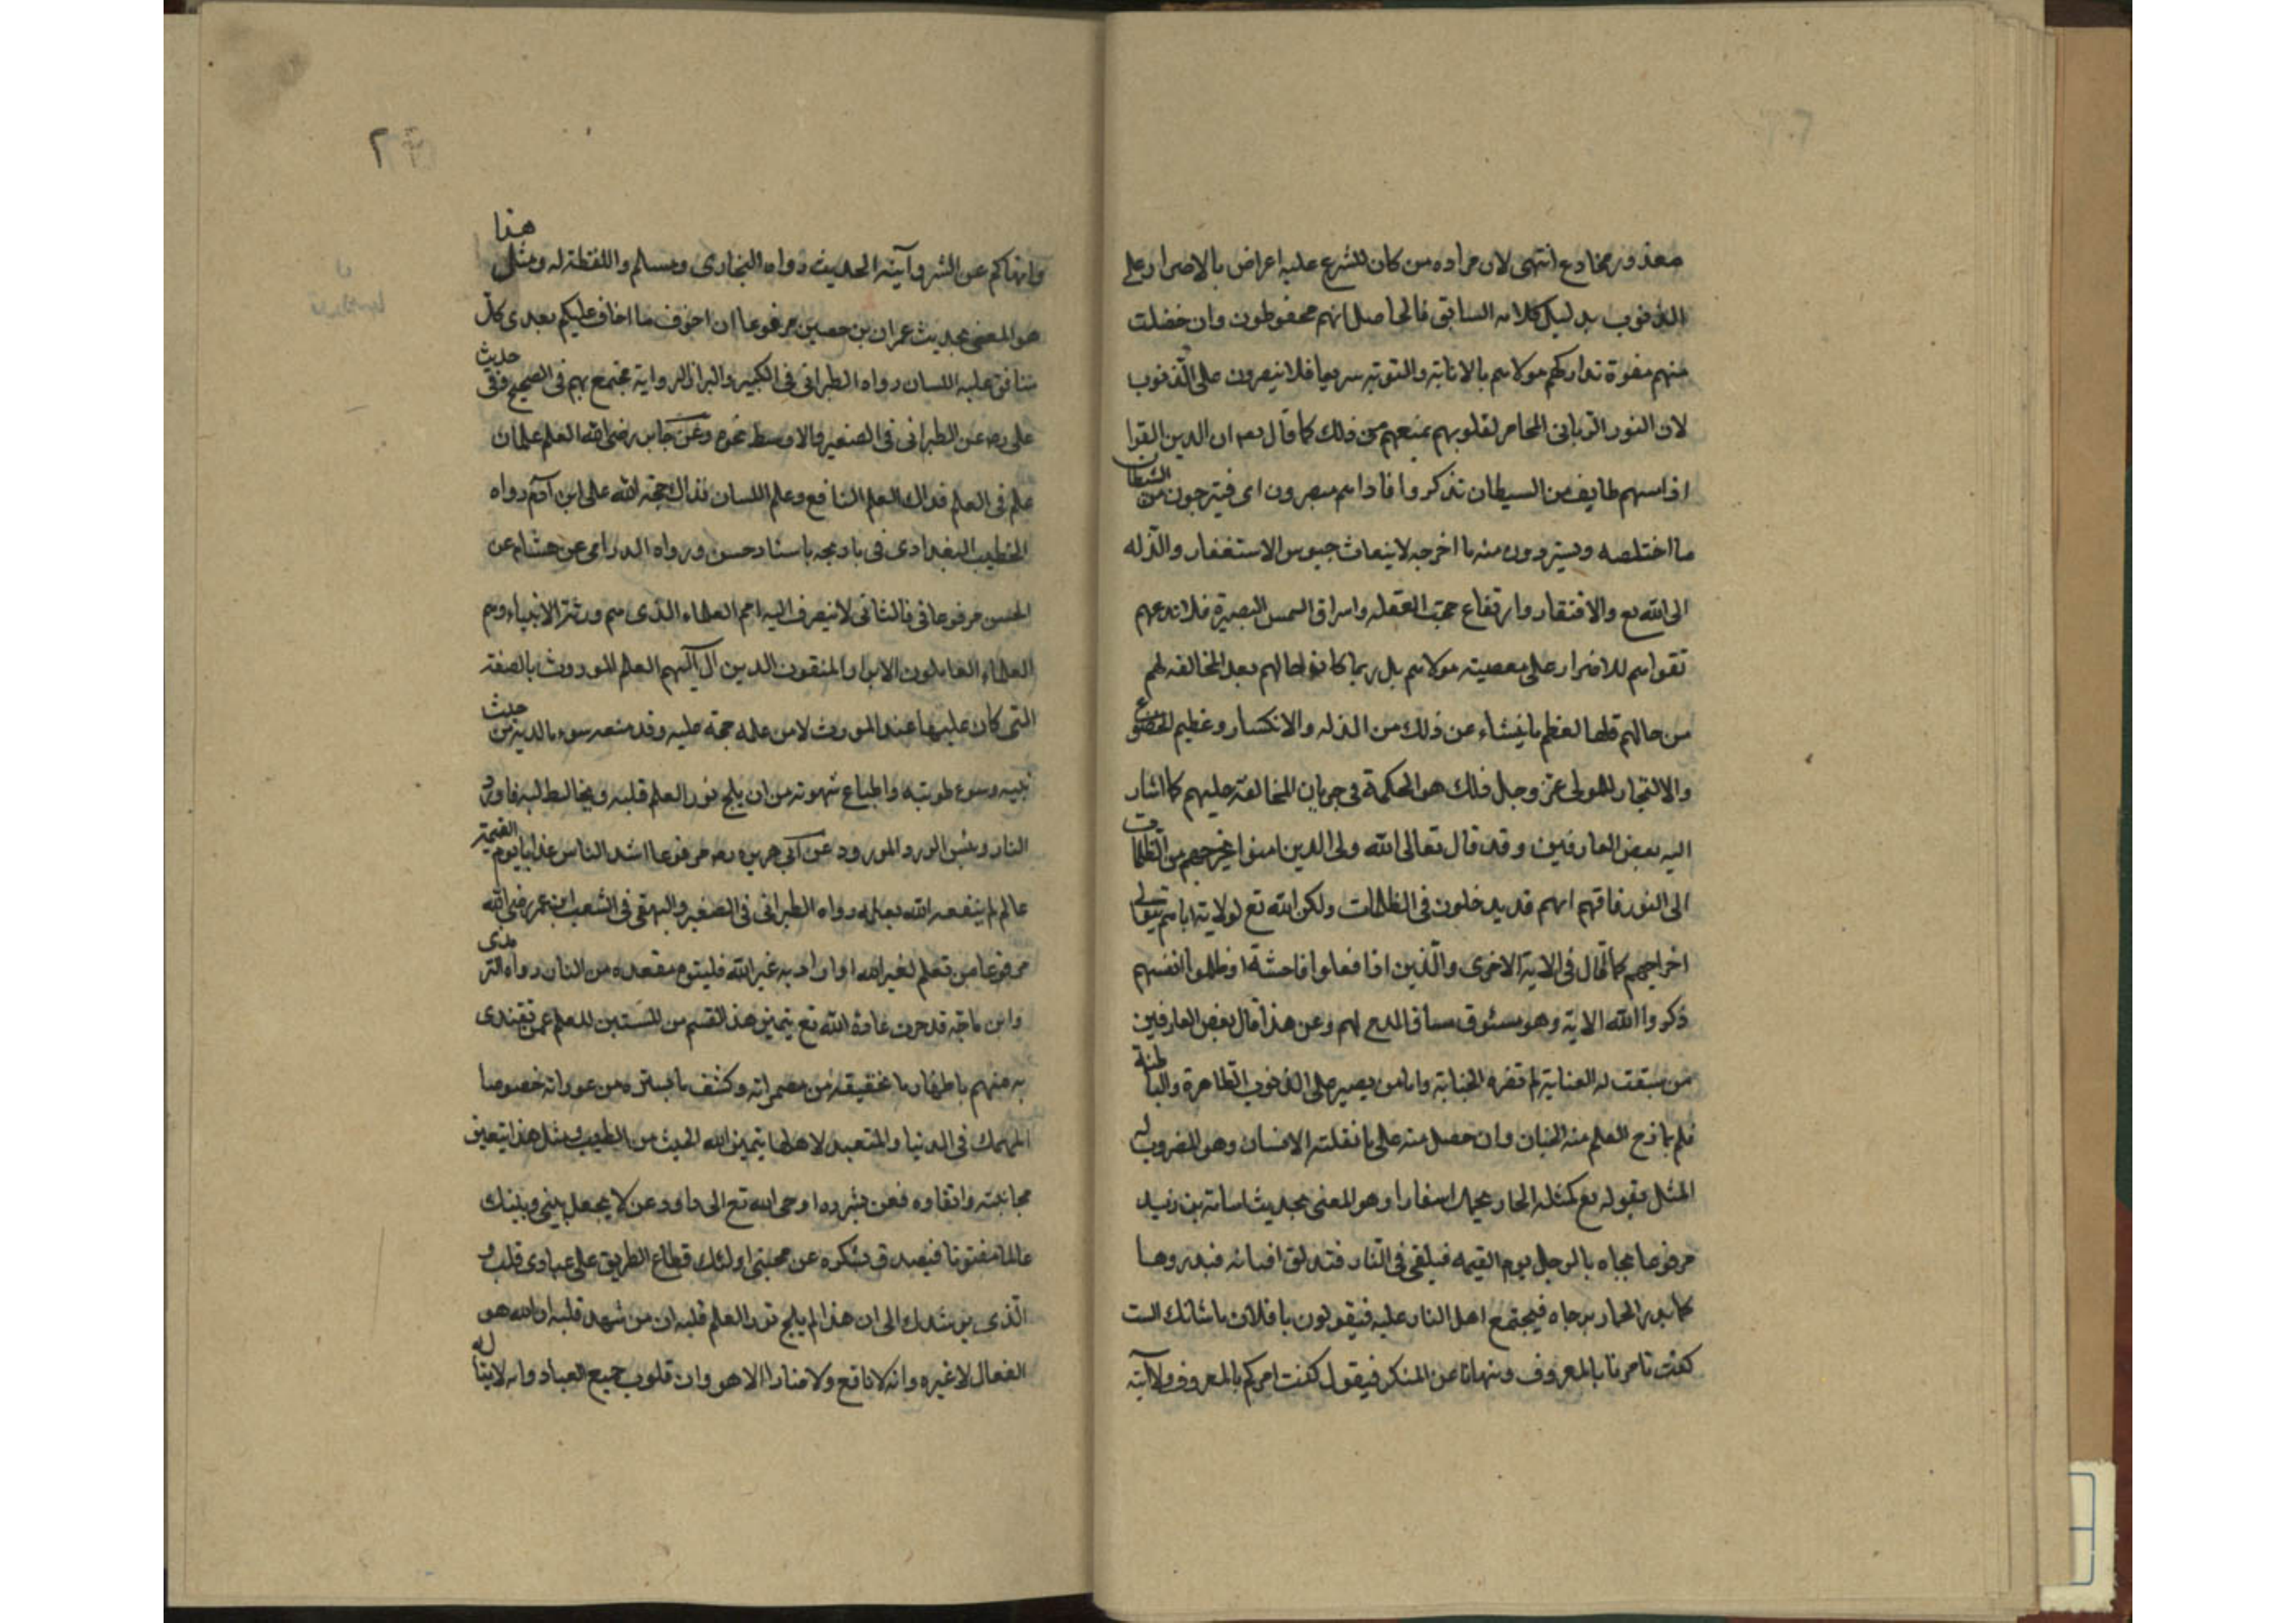 معذور مخادع انتهى لان مراده من كان للشرع عليه اعراض بالاصرار على
الذنوب بدليل كلامه السابق فالحاصل انهم محفوظون وان حصلت
منهم هفوة تداركهم مولاهم بالانابة والتوبة سريعا فلا يصرون على الذنوب
لان النور الرباني المحاصر لقلوبهم يمنعهم من ذلك كما قال تعه ان الدين اتقوا
اذا مسهم طايف من السيطان تذكروا فاذا هم مبصرون اى فيترجون من الشيطان
ما اختلصه ويستردون منه ما اخرجه لا ينعاث جيوس الاستغفار والذله
الى الله تع والافتقار وارتفاع حجب الغفله واسراق السمس البصيرة فلا تدعهم
تقواهم للاضرار على معصيته مولاهم بل ربما كانوا حالهم بعد المخالفه لهم
من حالهم قبلها لعظم ما ينشاء عن ذلك من الذله والانكسار وعظيم الخضوع
والالتجاء للمولى عز وجل فلك هو الحكمة في جريان المخالفة عليهم كما اشار
اليه بعض العارفين وقد قال تعالى الله ولى الدين امنوا يخرجهم من الظلمات
الى النور فافهم انهم قد يدخلون في الظلمات ولكن الله تع لولايته اياهم يتولى
اخراجهم كما قال في الاية الاخرى والذين اذا فعلوا فاحشة او ظلموا انفسهم
ذكروا الله الاية وهو مسئوق مساق المدح لهم وعن هذا قال بعض العارفين
من سبقت له العناية لم تضره الجناية واما من يصير على الذنوب الظاهرة والباطنة
فلم يازح العلم منه الجنان وان حصل منه على ما نقلته الانسان وهو المضروب له
المثل بقوله تع كمثله الحمار يحمل اسفارا وهو المعنى بحديث اسامة بن زيد
مرفوعا يجاه بالرجل يوم القيمه فيلقى في النار فتندلق اقتابه فيدروها
كما يدر الحمار برحاه فيجتمع اهل النار عليه فيقولون يا فلان ما شانك الست
كنت تامرنا بالمعروف وتنهانا عن المنكر فيقول كنت امركم بالمعروف ولا آتيه
وانهاكم عن الشر وآتيه الحديث رواه البخارى ومسلم واللفظة له ومثل هذا
هو المعنى بحديث عمران بن حصين مرفوعا ان اخوف ما اخاف عليكم بعدى كل
منافق عليه اللسان رواه الطبرانى في الكبير والبزار الرواية مجتمع بهم في الصحيح وفى حديث
على رصه عن الطبرانى في الصغير والاوسط نحوه وعن جابر رضى الله العلم علمان
علم في العلم فذاك العلم النافع وعلم اللسان فذاك حجة الله على ابن آدم رواه
الخطيب البغدادى في باريجه باسناد حسن ورواه الدرامى عن هشام عن
الحسن مرفوعا في فالثانى لا ينصرف اليه اسم العلماء الذى هم ورثة الانبياء وهم
العلماء العاملون الابرار والمتقون الدين آل اليهم العلم الموروث بالصفة
التى كان عليها عند المورث لا من علمه حجة عليه وقد منعه سوء ما لديه من حيث
نيته وسوء طويته واتباع شهوته من ان يلج نور العلم قلبه ويخالط لبه فاورده
النار وبئس الورد المورود عن ابى هريره رصه مرفوعا اشد الناس عذابا يوم القيمة
عالم لم ينفعه الله بعلمه رواه الطبرانى في الصغير والبهقى في الشعب ابن عمر رضى الله
مرفوعا من تعلم لغير الله او اراد به غير الله فليتبوء مقعده من النار رواه الترمذى
وابن ماجة قد جرت عادة الله تع بتميز هذا القسم من المنتسبين للعلم عمن يقتدى
به منهم باظهار ما يخفيه من مضمراته وكشف ما يستره من عوراته خصوصا
المنهمك في الدنيا والمتعبد لاهلها يتميز الله الخبيث من الطيب ومثل هذا يتعين
مجانبته واتقاوه فعن بشر ده اوحى الله تع الى داود عن لا يجعل بينى وبينك
عالما مفتونا فيصدق بسكره عن محبتى اولئك قطاع الطريق على عبادى قلب و
الذى يرشدك الى ان هذا لم يلج نور العلم قلبه ان من شهد قلبه ان الله هو
الفعال لا غيره وانه لا نافع ولا ضار الا هو وان قلوب جميع العباد وانه لا يتاله